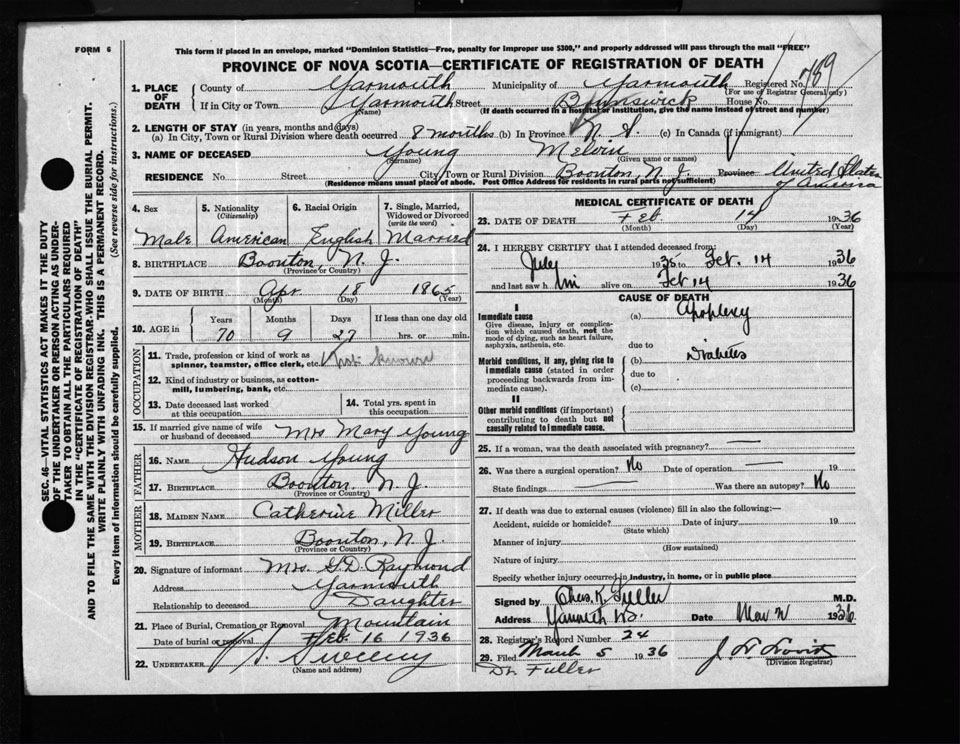 FORM 6
This form if placed in an envelope, marked "Dominion Statistics—Free, penalty for improper use $300," and properly addressed will pass through the mail "FREE"
PROVINCE OF NOVA SCOTIA—CERTIFICATE OF REGISTRATION OF DEATH
1. PLACE OF DEATH
County of Yarmouth Municipality of Yarmouth Registered No. 789
(For use of Registrar General only)
If in City or Town Yarmouth Street Brunswick House No.
(If death occurred in a hospital or institution, give the name instead of street and number)
2. LENGTH OF STAY (in years, months and days)
(a) In City, Town or Rural Division where death occurred 8 months (b) In Province N. S. (c) In Canada (if immigrant)
3. NAME OF DECEASED Young Melvin
(Surname) (Given name or names)
RESIDENCE No. Street City, Town or Rural Division Boonton, N. J. Province United States of America
(Residence means usual place of abode. Post Office Address for residents in rural parts not sufficient)
4. Sex
Male
5. Nationality
(Citizenship)
American
6. Racial Origin
English
7. Single, Married, Widowed or Divorced
(write the word)
Married
8. BIRTHPLACE Boonton, N. J.
(Province or Country)
9. DATE OF BIRTH Apr 18 1865
(Month) (Day) (Year)
10. AGE in
Years Months Days If less than one day old
70 9 27 hrs. or min.
OCCUPATION
11. Trade, profession or kind of work as spinner, teamster, office clerk, etc. Not known
12. Kind of industry or business, as cotton-mill, lumbering, bank, etc.
13. Date deceased last worked at this occupation
14. Total yrs. spent in this occupation
15. If married give name of wife or husband of deceased Mrs Mary Young
FATHER
16. NAME Hudson Young
17. BIRTHPLACE Boonton, N. J.
(Province or Country)
MOTHER
18. MAIDEN NAME Catherine Miller
19. BIRTHPLACE Boonton, N. J.
(Province or Country)
20. Signature of informant Mrs. G. D. Raymond
Address Yarmouth
Relationship to deceased Daughter
21. Place of Burial, Cremation or Removal Mountain
Date of burial or removal Feb. 16 1936
22. UNDERTAKER Sweeny
(Name and address)
MEDICAL CERTIFICATE OF DEATH
23. DATE OF DEATH Feb 14 1936
(Month) (Day) (Year)
24. I HEREBY CERTIFY that I attended deceased from:
July 1935 to Feb. 14 1936
and last saw h im alive on Feb 14 1936
CAUSE OF DEATH
I
Immediate cause (a) Apoplexy
Give disease, injury or complication which caused death, not the mode of dying, such as heart failure, asphyxia, asthenia, etc.
due to
Morbid conditions, if any, giving rise to immediate cause (stated in order proceeding backwards from immediate cause).
(b) Diabetes
due to
(c)
II
Other morbid conditions (if important) contributing to death but not causally related to immediate cause.
25. If a woman, was the death associated with pregnancy? —
26. Was there a surgical operation? No Date of operation — 19
State findings — Was there an autopsy? No
27. If death was due to external causes (violence) fill in also the following:—
Accident, suicide or homicide? Date of injury 19
(State which)
Manner of injury
(How sustained)
Nature of injury
Specify whether injury occurred in industry, in home, or in public place
Signed by Chas. K. Fuller M.D.
Address Yarmouth N.S. Date Mar 2 1936
28. Registrar's Record Number 24
29. Filed March 5 1936
(Division Registrar)
Dr. Fuller
SEC. 46—VITAL STATISTICS ACT MAKES IT THE DUTY OF THE UNDERTAKER OR PERSON ACTING AS UNDERTAKER TO OBTAIN ALL THE PARTICULARS REQUIRED IN THE "CERTIFICATE OF REGISTRATION OF DEATH" AND TO FILE THE SAME WITH THE DIVISION REGISTRAR WHO SHALL ISSUE THE BURIAL PERMIT.
WRITE PLAINLY WITH UNFADING INK. THIS IS A PERMANENT RECORD.
Every item of information should be carefully supplied. (See reverse side for instructions.)